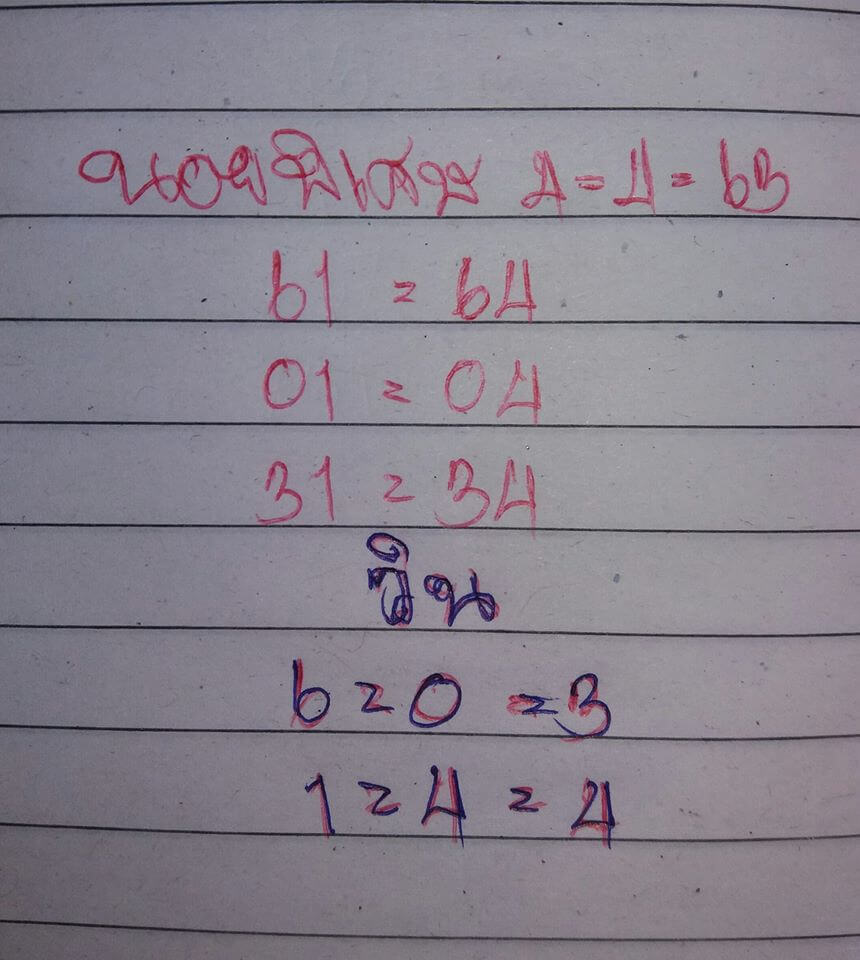 ฮานอยพิเศษ 4=4=63
61 = 64
01 = 04
31 = 34
วิน
6=0=3
1=4=4